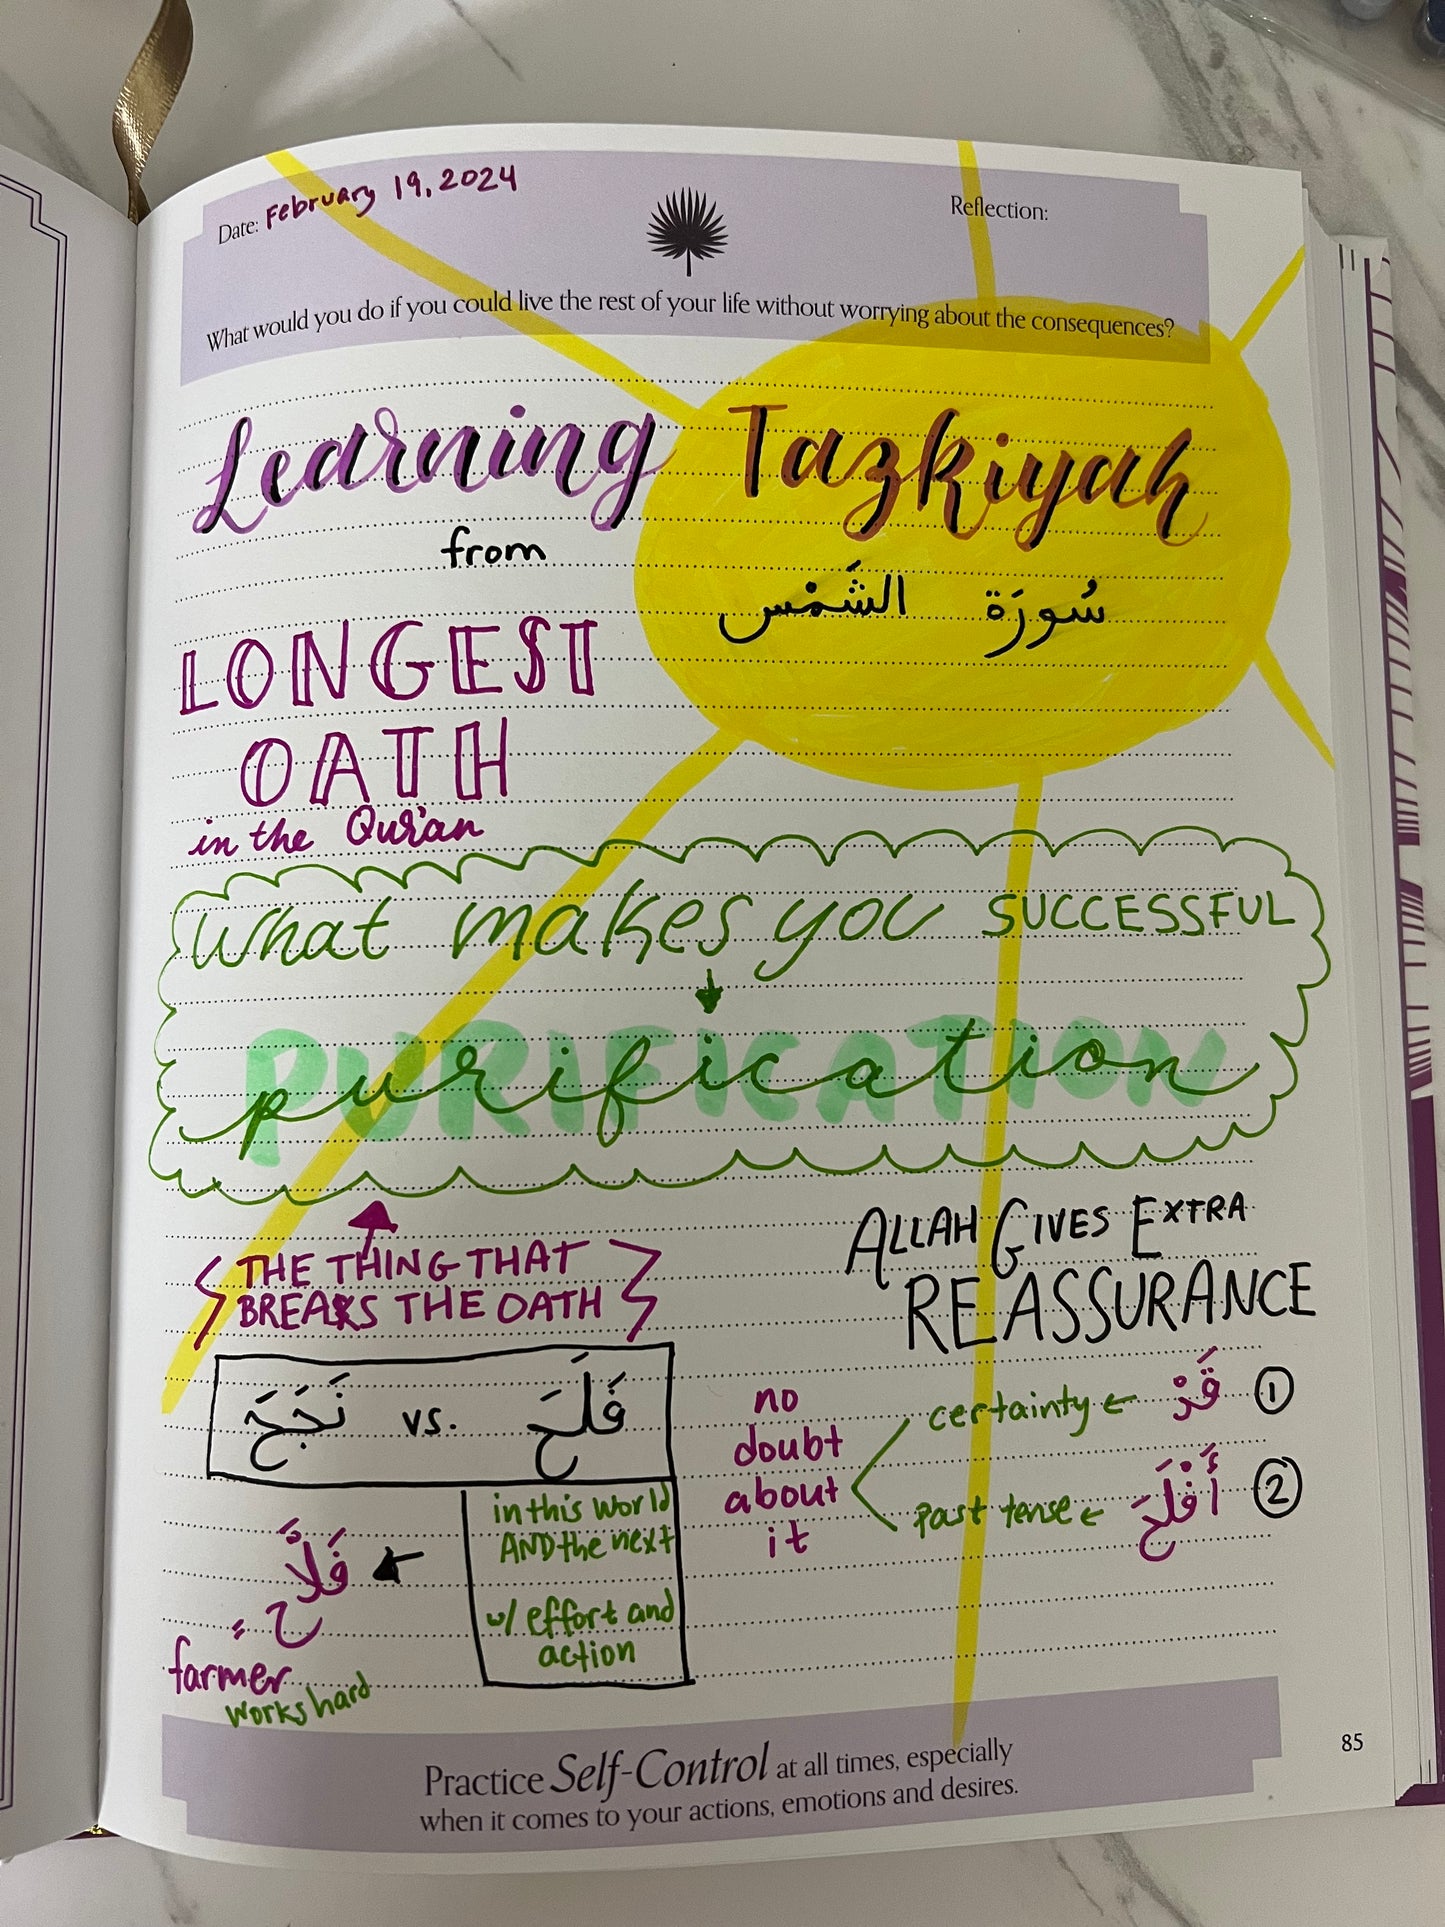 Date: February 19, 2024
Reflection:
What would you do if you could live the rest of your life without worrying about the consequences?
Learning Tazkiyah
from
سُورَة الشَّمْس
LONGEST
OATH
in the Qur'an
What makes you SUCCESSFUL
PURIFICATION
purification
THE THING THAT
BREAKS THE OATH
ALLAH GIVES EXTRA
REASSURANCE
فَلَحَ vs. نَجَحَ
in this world
AND the next
w/ effort and
action
فَلَّاح
=
farmer
works hard
① قَدْ ← certainty
② أَفْلَحَ ← past tense
no
doubt
about
it
Practice Self-Control at all times, especially
when it comes to your actions, emotions and desires.
85